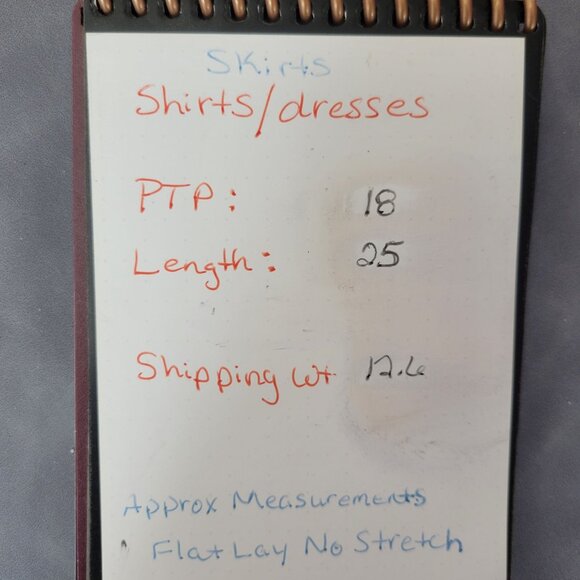 Skirts
Shirts/dresses
PTP: 18
Length: 25
Shipping Wt 12.6
Approx Measurements
Flat Lay No Stretch